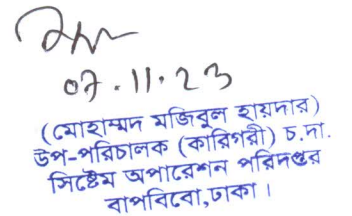 07.11.23
(মোহাম্মদ মজিবুল হায়দার)
উপ-পরিচালক (কারিগরী) চ.দা.
সিষ্টেম অপারেশন পরিদপ্তর
বাপবিবো,ঢাকা।